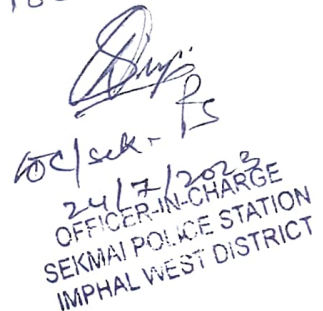 OC/sek - PS
24/7/2023
OFFICER-IN-CHARGE
SEKMAI POLICE STATION
IMPHAL WEST DISTRICT